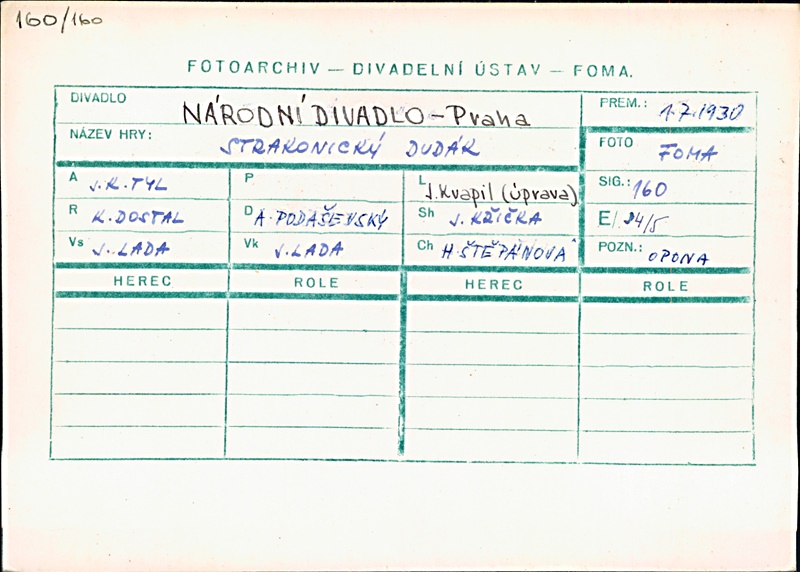 160/160
FOTOARCHIV — DIVADELNÍ ÚSTAV — FOMA.
DIVADLO NÁRODNÍ DIVADLO – Praha PREM.: 1.7.1930
NÁZEV HRY: STRAKONICKÝ DUDÁK FOTO FOMA
A J.K.TYL P L J.Kvapil (úprava) SIG.: 160
R K.DOSTAL D A.PODAŠEVSKÝ Sh J.KŘIČKA E/24/5
Vs J.LADA Vk J.LADA Ch H.ŠTĚPÁNOVA POZN.: OPONA
HEREC ROLE HEREC ROLE